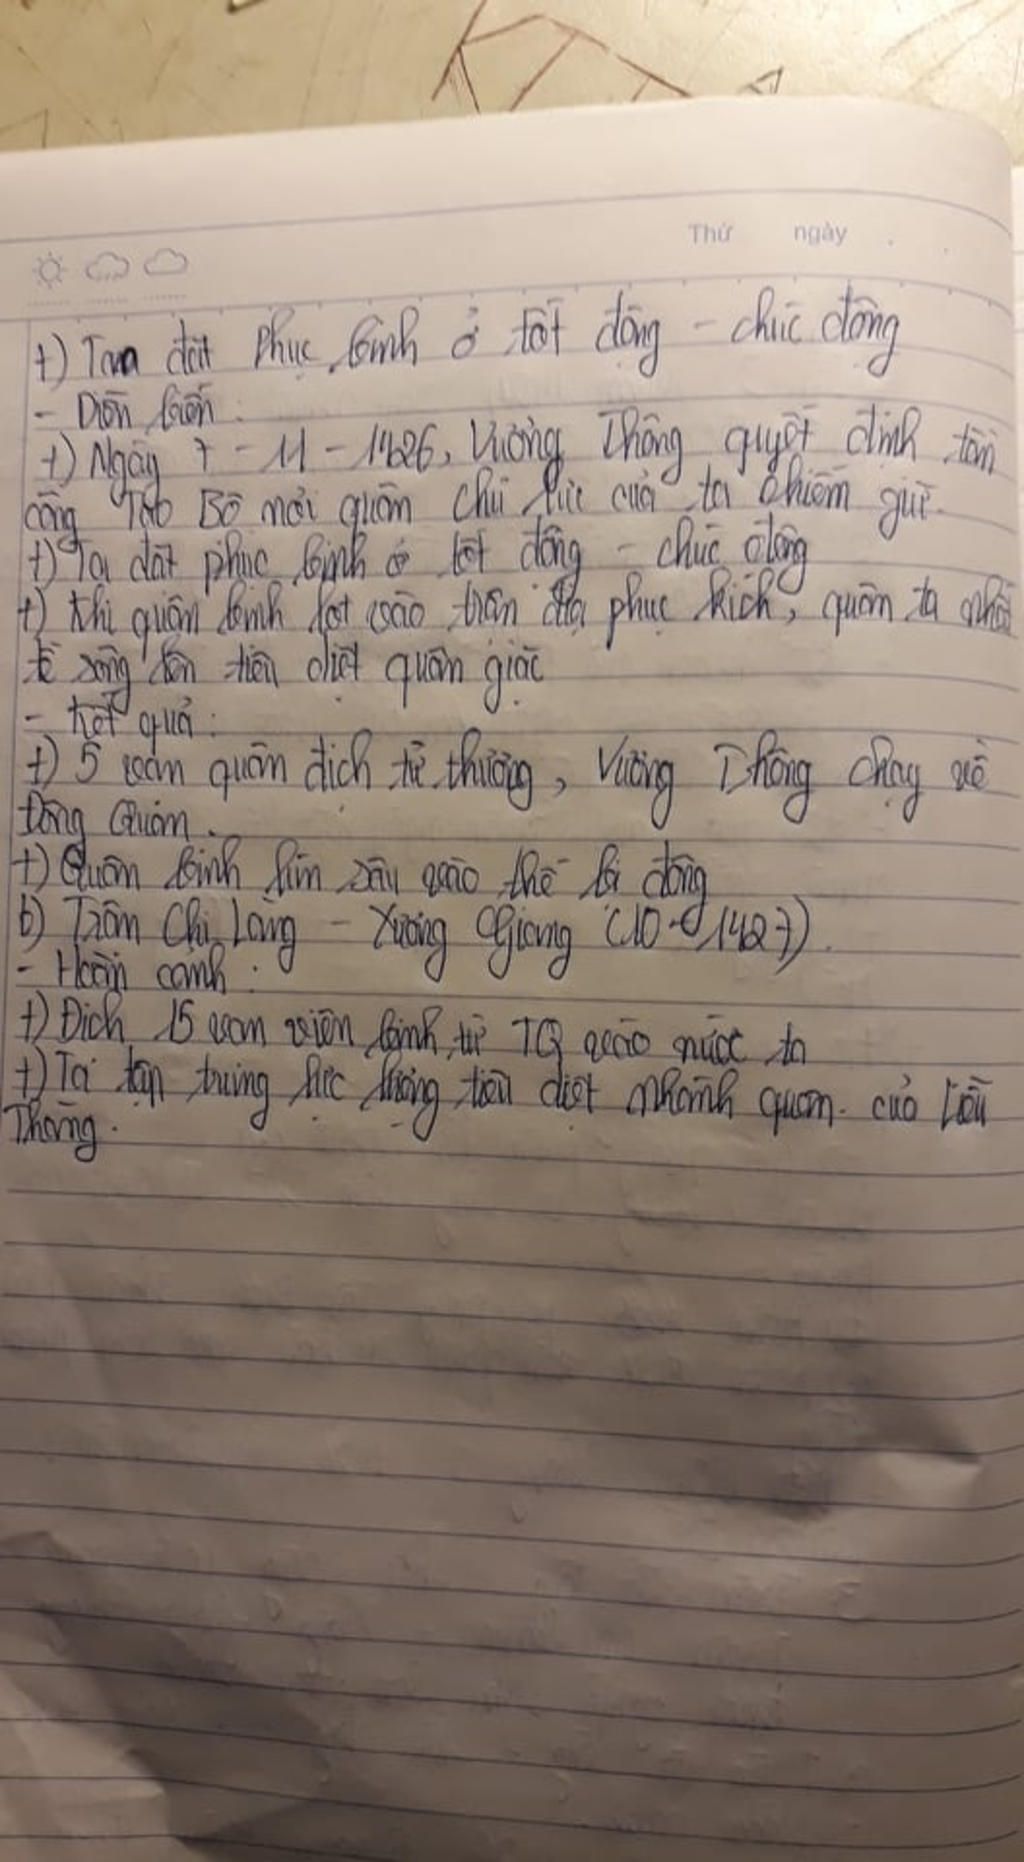 Thứ ngày
+) Ta đặt phục binh ở tốt động - chúc động
- Diễn biến :
+) Ngày 7 - 11 - 1426, Vương Thông quyết định tấn
công Tây Bộ nơi quân chủ lực của ta chiếm giữ.
+) Ta đặt phục binh ở tốt động - chúc động
+) Khi quân Minh lọt vào trận địa phục kích, quân ta nhất
tề xông lên tiêu diệt quân giặc
- Kết quả :
+) 5 vạn quân địch tử thương, Vương Thông chạy về
Đông Quan.
+) Quân Minh lún sâu vào thế bị động
b) Trận Chi Lăng - Xương Giang (10 - 1427).
- Hoàn cảnh :
+) Địch 15 vạn viện binh từ TQ vào nước ta
+) Ta tập trung lực lượng tiêu diệt nhánh quân của Liễu
Thăng.